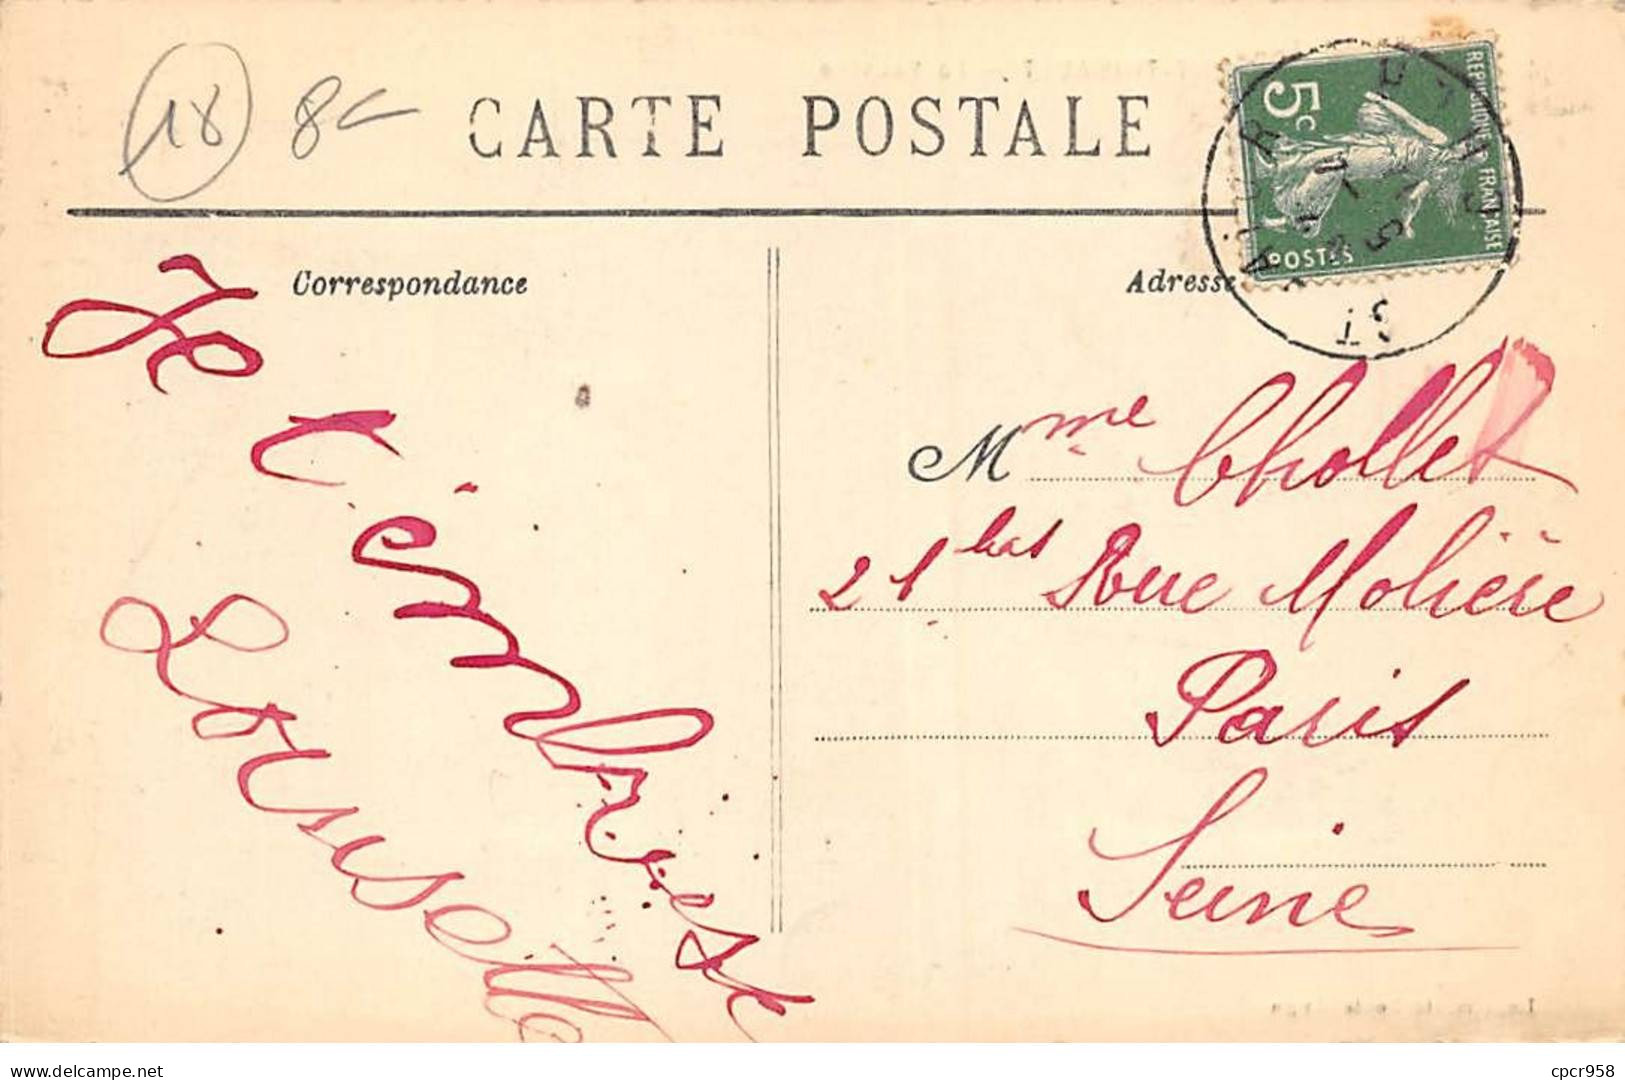 18 8
CARTE POSTALE
5c
REPUBLIQUE FRANÇAISE
POSTES
Correspondance
Adresse
Je
t'embrasse
Lousette
Mme Chollet
21 bis Rue Molière
Paris
Seine
delcampe.net
cpcr958